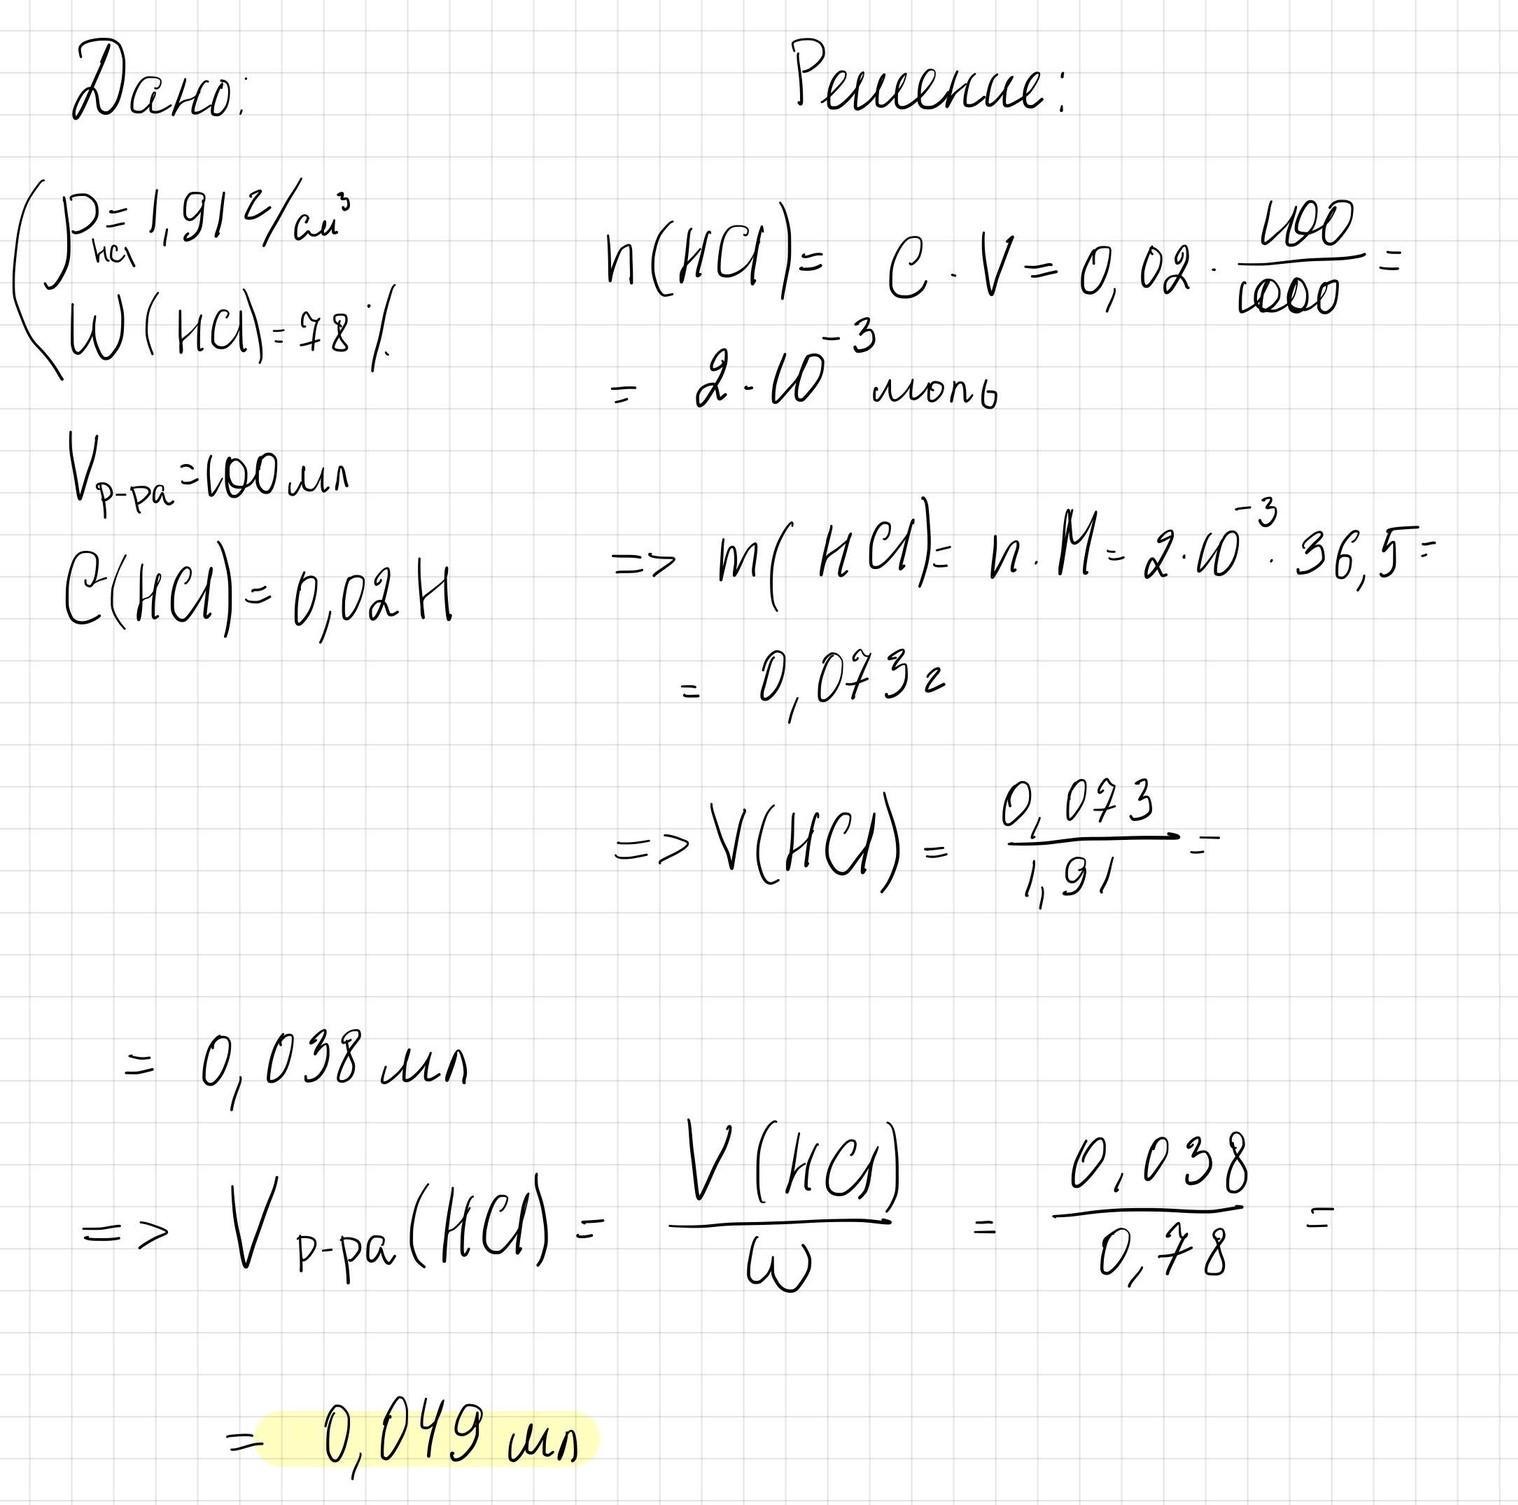 Дано:
ρ HCl = 1,91 г/см³
W(HCl) = 78%
Vр-ра = 100 мл
C(HCl) = 0,02 Н
Решение:
n(HCl) = C · V = 0,02 · 100/1000 =
= 2 · 10⁻³ моль
=> m(HCl) = n · M = 2 · 10⁻³ · 36,5 =
= 0,073 г
=> V(HCl) = 0,073/1,91 =
= 0,038 мл
=> Vр-ра(HCl) = V(HCl)/W = 0,038/0,78 =
= 0,049 мл